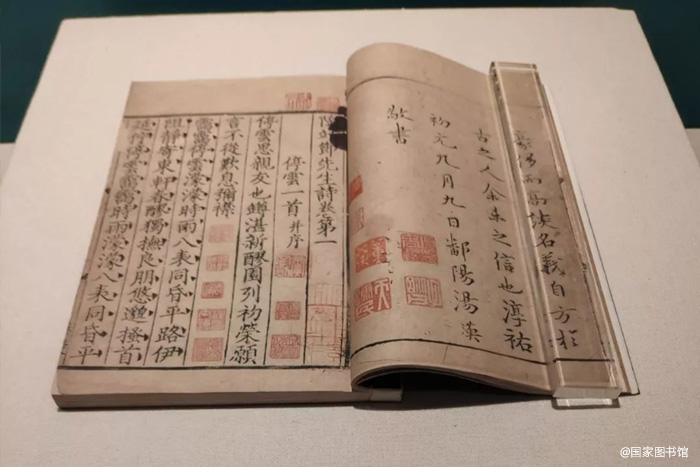 豪侈而高談名義自方於
古之人余未之信也淳祐
初元九月九日鄱陽湯漢
敬書
陶靖節先生詩卷第一
停雲一首并序
停雲思親友也罇湛新醪園列初榮願
言不從歎息彌襟
靄靄停雲濛濛時雨八表同昏平路伊
阻靜寄東軒春醪獨撫良朋悠邈搔首
延佇停雲靄靄時雨濛濛八表同昏平
@国家图书馆